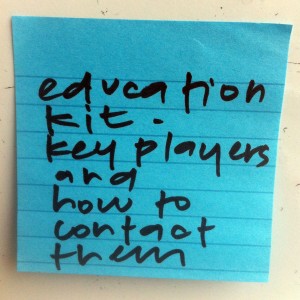 education
kit.
key players
and
how to
contact
them